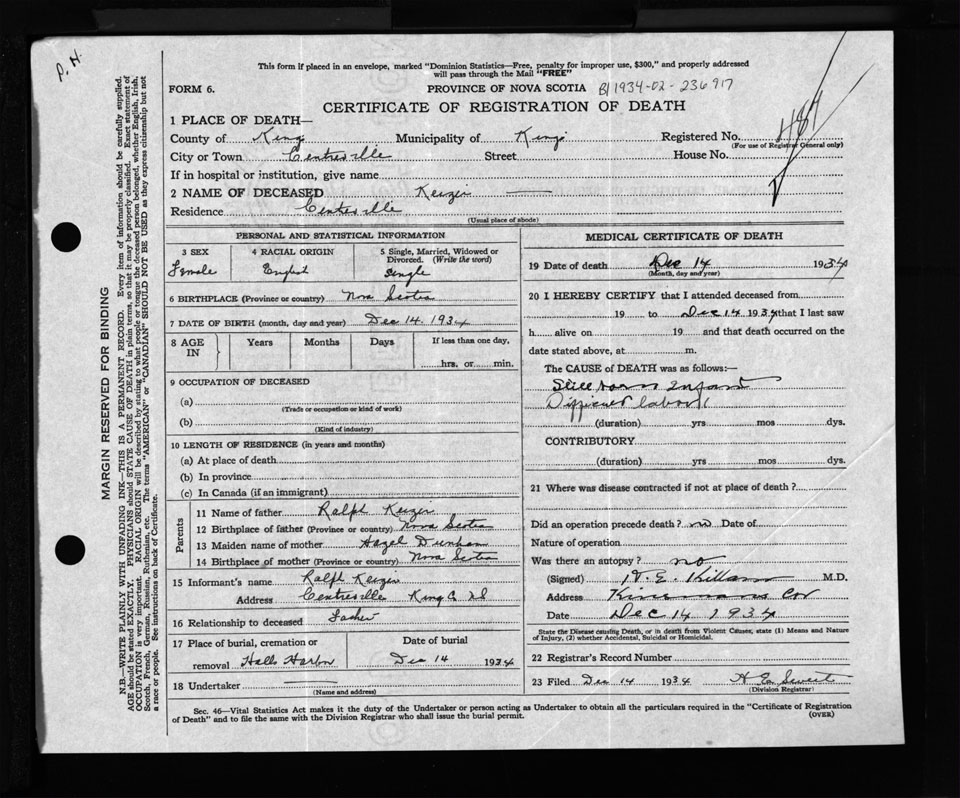 P. H.
This form if placed in an envelope, marked "Dominion Statistics—Free, penalty for improper use, $300," and properly addressed
will pass through the Mail "FREE"
FORM 6.
PROVINCE OF NOVA SCOTIA B/1934-02-236917
CERTIFICATE OF REGISTRATION OF DEATH
1 PLACE OF DEATH—
County of Kings Municipality of Kings Registered No. 484
(For use of Registrar General only)
City or Town Centreville Street House No.
If in hospital or institution, give name
2 NAME OF DECEASED Keizer
Residence Centreville
(Usual place of abode)
PERSONAL AND STATISTICAL INFORMATION
3 SEX 4 RACIAL ORIGIN 5 Single, Married, Widowed or
Divorced. (Write the word)
Female English Single
6 BIRTHPLACE (Province or country) Nova Scotia
7 DATE OF BIRTH (month, day and year) Dec 14. 1934
8 AGE IN Years Months Days If less than one day,
hrs. or min.
9 OCCUPATION OF DECEASED
(a)
(Trade or occupation or kind of work)
(b)
(Kind of industry)
10 LENGTH OF RESIDENCE (in years and months)
(a) At place of death
(b) In province
(c) In Canada (if an immigrant)
Parents
11 Name of father Ralph Keizer
12 Birthplace of father (Province or country) Nova Scotia
13 Maiden name of mother Hazel Dunham
14 Birthplace of mother (Province or country) Nova Scotia
15 Informant's name Ralph Keizer
Address Centreville Kings Co. N S
16 Relationship to deceased Father
17 Place of burial, cremation or Date of burial
removal Halls Harbor Dec 14 1934
18 Undertaker
(Name and address)
MEDICAL CERTIFICATE OF DEATH
19 Date of death Dec 14 1934
(Month, day and year)
20 I HEREBY CERTIFY that I attended deceased from
19 to Dec 14 1934 that I last saw
h alive on 19 and that death occurred on the
date stated above, at m.
The CAUSE of DEATH was as follows:—
Still born Infant
Difficult labor
(duration) yrs mos dys.
CONTRIBUTORY
(duration) yrs mos dys.
21 Where was disease contracted if not at place of death?
Did an operation precede death? no Date of
Nature of operation
Was there an autopsy? no
(Signed) W. E. Killam M.D.
Address Kinsmans Cor
Date Dec 14 1934
State the Disease causing Death, or in death from Violent Causes, state (1) Means and Nature
of Injury, (2) whether Accidental, Suicidal or Homicidal.
22 Registrar's Record Number
23 Filed Dec 14 1934 H E Sweet
(Division Registrar)
Sec. 46—Vital Statistics Act makes it the duty of the Undertaker or person acting as Undertaker to obtain all the particulars required in the "Certificate of Registration
of Death" and to file the same with the Division Registrar who shall issue the burial permit.
(OVER)
MARGIN RESERVED FOR BINDING
N.B.—WRITE PLAINLY WITH UNFADING INK—THIS IS A PERMANENT RECORD. Every item of information should be carefully supplied.
AGE should be stated EXACTLY. PHYSICIANS should STATE CAUSE OF DEATH in plain terms, so that it may be properly classified. Exact statement of
OCCUPATION is very important. RACIAL ORIGIN will be described by stating to what people or tongue the deceased person belonged, whether English, Irish,
Scotch, French, German, Russian, Ruthenian, etc. The terms "AMERICAN" or "CANADIAN" SHOULD NOT BE USED as they express citizenship but not
a race or people. See instructions on back of Certificate.